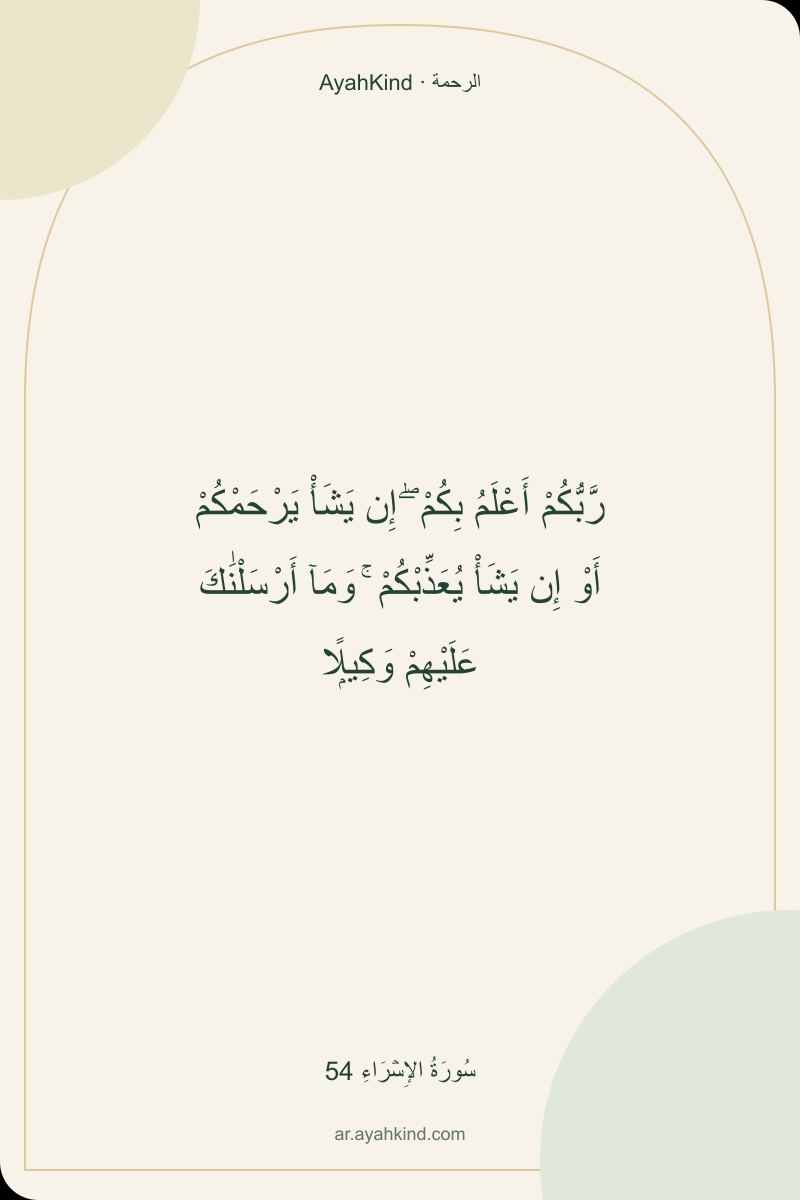 AyahKind · الرحمة
رَّبُّكُمْ أَعْلَمُ بِكُمْ ۖ إِن يَشَأْ يَرْحَمْكُمْ
أَوْ إِن يَشَأْ يُعَذِّبْكُمْ ۚ وَمَآ أَرْسَلْنَٰكَ
عَلَيْهِمْ وَكِيلًۭا
سُورَةُ الإِسۡرَاءِ 54
ar.ayahkind.com